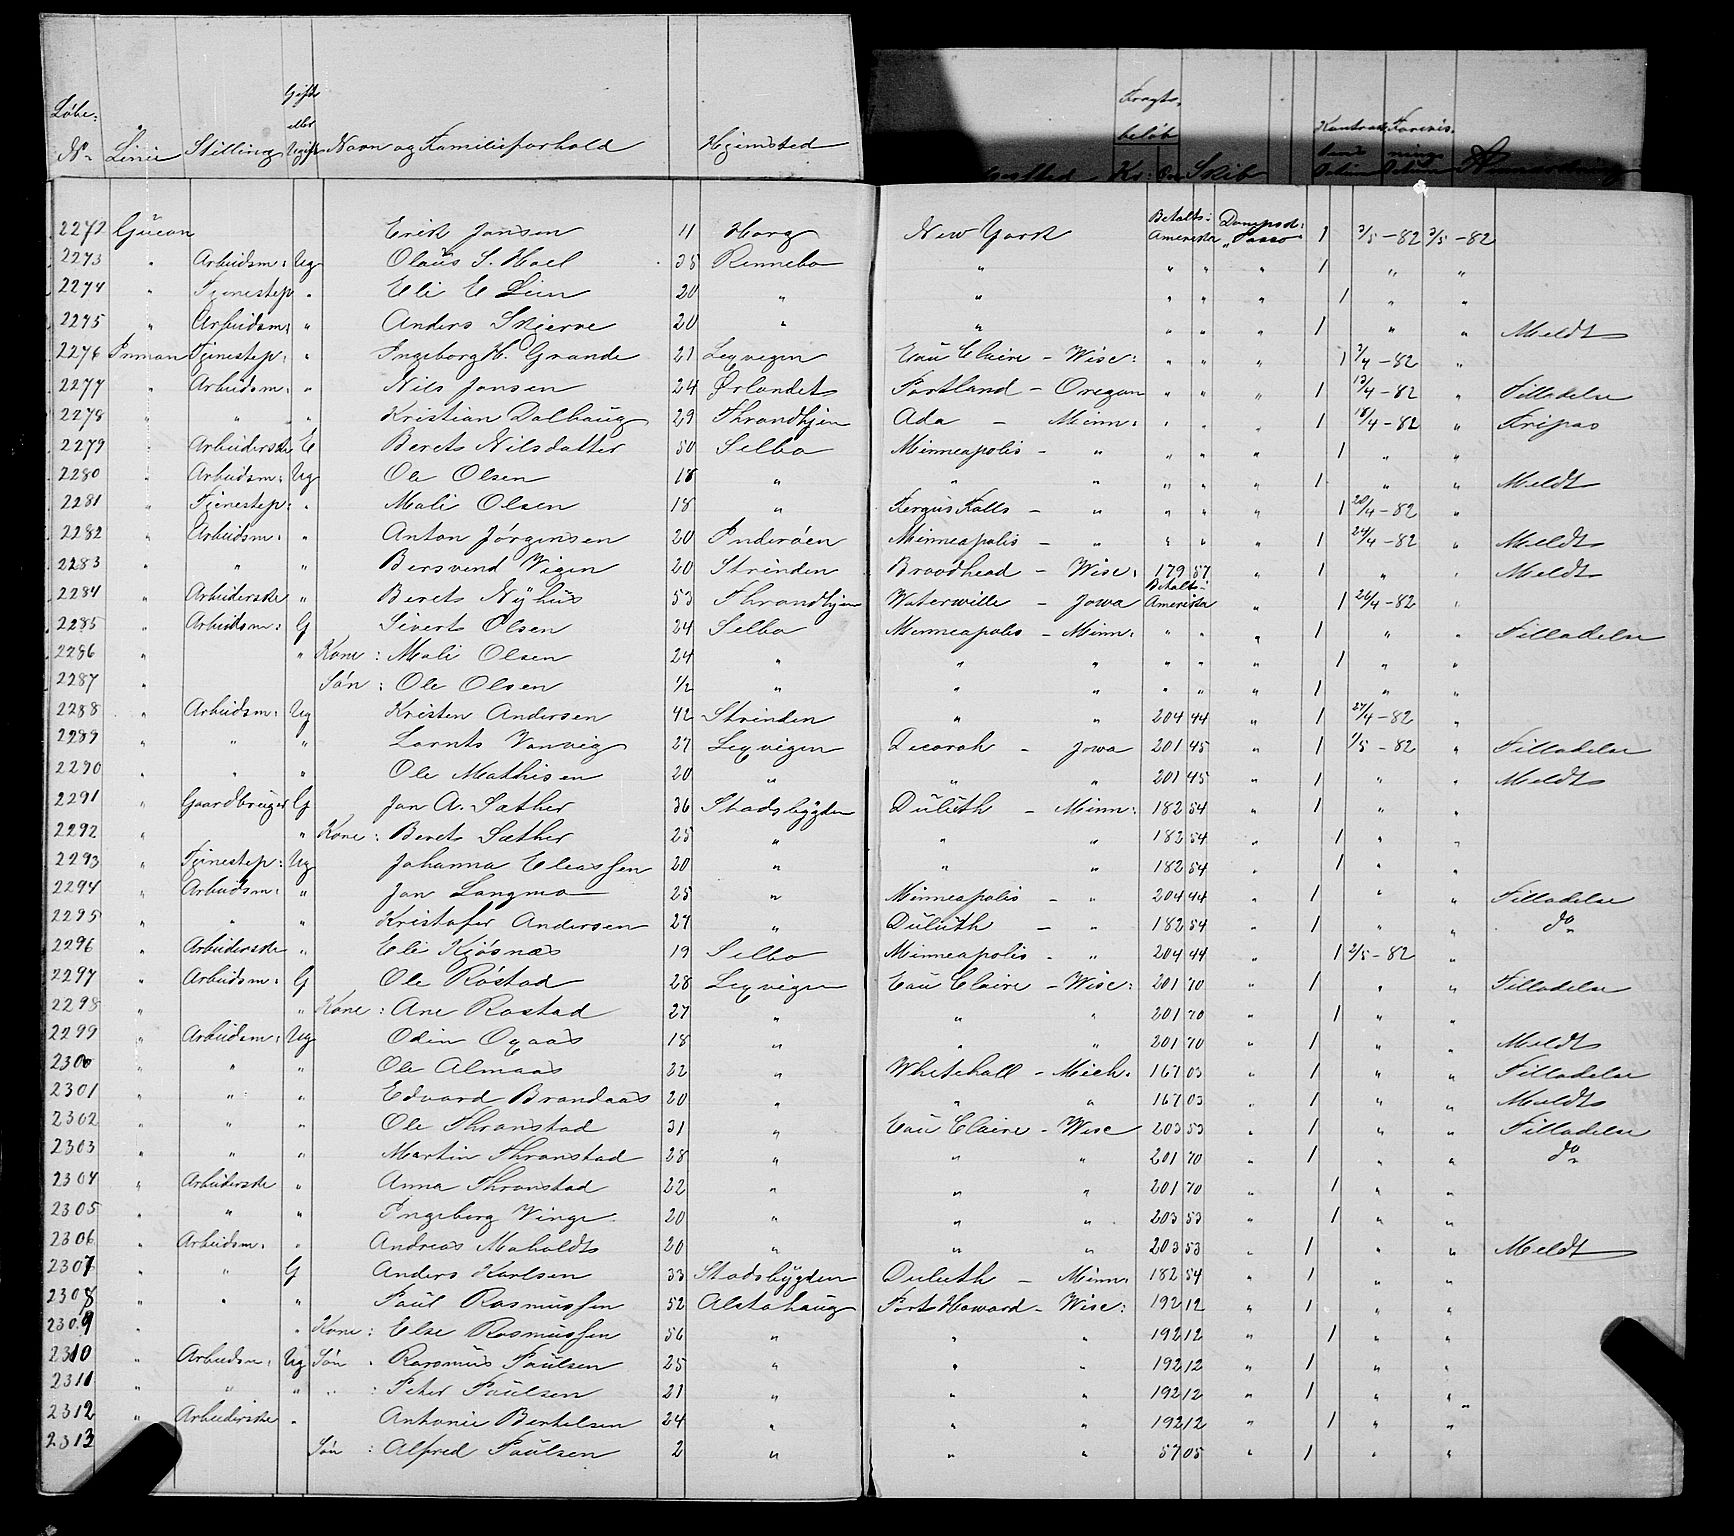 Løbe: Gift Fragts-
eller beløb Kontrac Forevis-
No Linie Stilling Ugift Navn og Familieforhold Hjemstad Kr: Øre Skib
2272 Guion Erik Jonsen 11 Horg New York Betalt i Amerika Dampsk: "Tasso" 1 3/5-82 3/5-82
2273 " Arbeidsm: Ug Olaus S. Hoel 35 Rennebo " " " " 1 " "
2274 " Tjenestep " Eli E Lien 20 " " " " " 1 " "
2275 " Arbeidsm: " Anders Skierve 20 " " " " " 1 " " Meldt
2276 Inman Tjenestep: " Ingeborg H. Grande 21 Lexvigen Eau Claire - Wisc: " " " 1 3/4-82 "
2277 " Arbeidsm: " Nils Jonsen 24 Ørlandet Portland - Oregon " " " 1 13/4-82 " Tilladelse
2278 " " " Kristian Dalhaug 29 Throndhjem Ada - Minn: " " " 1 18/4-82 " Fripas
2279 " Arbeiderske E Berets Nilsdatter 50 Selbo Minneapolis - " " " " 1 " "
2280 " Arbeidsm: Ug Ole Olsen 18 " " " " " " 1 " " Meldt
2281 " Tjenestep: " Mali Olsen 18 " Fergus Falls - " " " " 1 20/4-82 "
2282 " Arbeidsm: " Anton Jørgensen 20 Inderøen Minneapolis - " " " " 1 24/4-82 " Meldt
2283 " " " Bersvend Vigen 20 Strinden Broodhead - Wisc: 179 57 " 1 " " Meldt
2284 " Arbeiderske " Berets Nyhus 53 Throndhjem Waterville - Jowa Betalt i Amerika " 1 26/4-82 "
2285 " Arbeidsm: G Sivert Olsen 24 Selbo Minneapolis - Minn: " " " 1 " " Tilladelse
2286 " " Kone: Mali Olsen 24 " " " " " " 1 " "
2287 " Søn: Ole Olsen 1/2 " " " " " " 1 " "
2288 " Arbeidsm: Ug Kristen Andersen 42 Strinden " " 204 44 " 1 27/4-82 "
2289 " " " Lornts Vanvig 27 Lexvigen Decorah - Jowa 201 45 " 1 1/5-82 " Tilladelse
2290 " " " Ole Mathisen 20 " " " 201 45 " 1 " " Meldt
2291 " Gaardbruger G Jon A. Sæther 36 Stadsbygden Duluth - Minn: 182 54 " 1 " "
2292 " " Kone: Berets Sæther 25 " " " 182 54 " 1 " "
2293 " Tjenestep: Ug Johanna Eliassen 20 " " " 182 54 " 1 " "
2294 " Arbeidsm: " Jon Langmo 25 " Minneapolis - " 204 44 " 1 " " Tilladelse
2295 " " " Kristofer Andersen 27 " Duluth - " 182 54 " 1 " " do
2296 " Arbeiderske " Eli Kjøsnæs 19 Selbo Minneapolis - " 204 44 " 1 2/5-82 "
2297 " Arbeidsm: G Ole Røstad 28 Lexvigen Eau Claire - Wisc: 201 70 " 1 " " Tilladelse
2298 " " Kone: Ane Røstad 27 " " " 201 70 " 1 " "
2299 " Arbeidsm: Ug Odin Oxaas 18 " " " 201 70 " 1 " " Meldt
2300 " " " Ole Almaas 22 " Whitehall - Mich. 167 03 " 1 " " Tilladelse
2301 " " " Edvard Brandaas 20 " " " 167 03 " 1 " " Meldt
2302 " " " Ole Thronstad 31 " Eau Claire - Wisc 203 53 " 1 " " Tilladelse
2303 " " " Martin Thronstad 28 " " " 201 70 " 1 " " do
2304 " Arbeiderske " Anna Thronstad 22 " " " 201 70 " 1 " "
2305 " " " Ingeborg Vinge 20 " " " 203 53 " 1 " "
2306 " Arbeidsm: " Andreas Maholdt 20 " " " 203 53 " 1 " " Meldt
2307 " " G Anders Karlsen 33 Stadsbygden Duluth - Minn: 182 54 " 1 " "
2308 " " " Paul Rasmussen 52 Alstahaug Fort Howard - Wisc: 192 12 " 1 " "
2309 " " Kone: Else Rasmussen 56 " " " 192 12 " 1 " "
2310 " Arbeidsm: Ug Søn " Rasmus Paulsen 25 " " " 192 12 " 1 " "
2311 " " " " : Peter Paulsen 21 " " " 192 12 " 1 " "
2312 " Arbeiderske " Antonie Bertelsen 24 " " " 192 12 " 1 " "
2313 Søn: Alfred Paulsen 2 " " " 57 05 " 1 " "